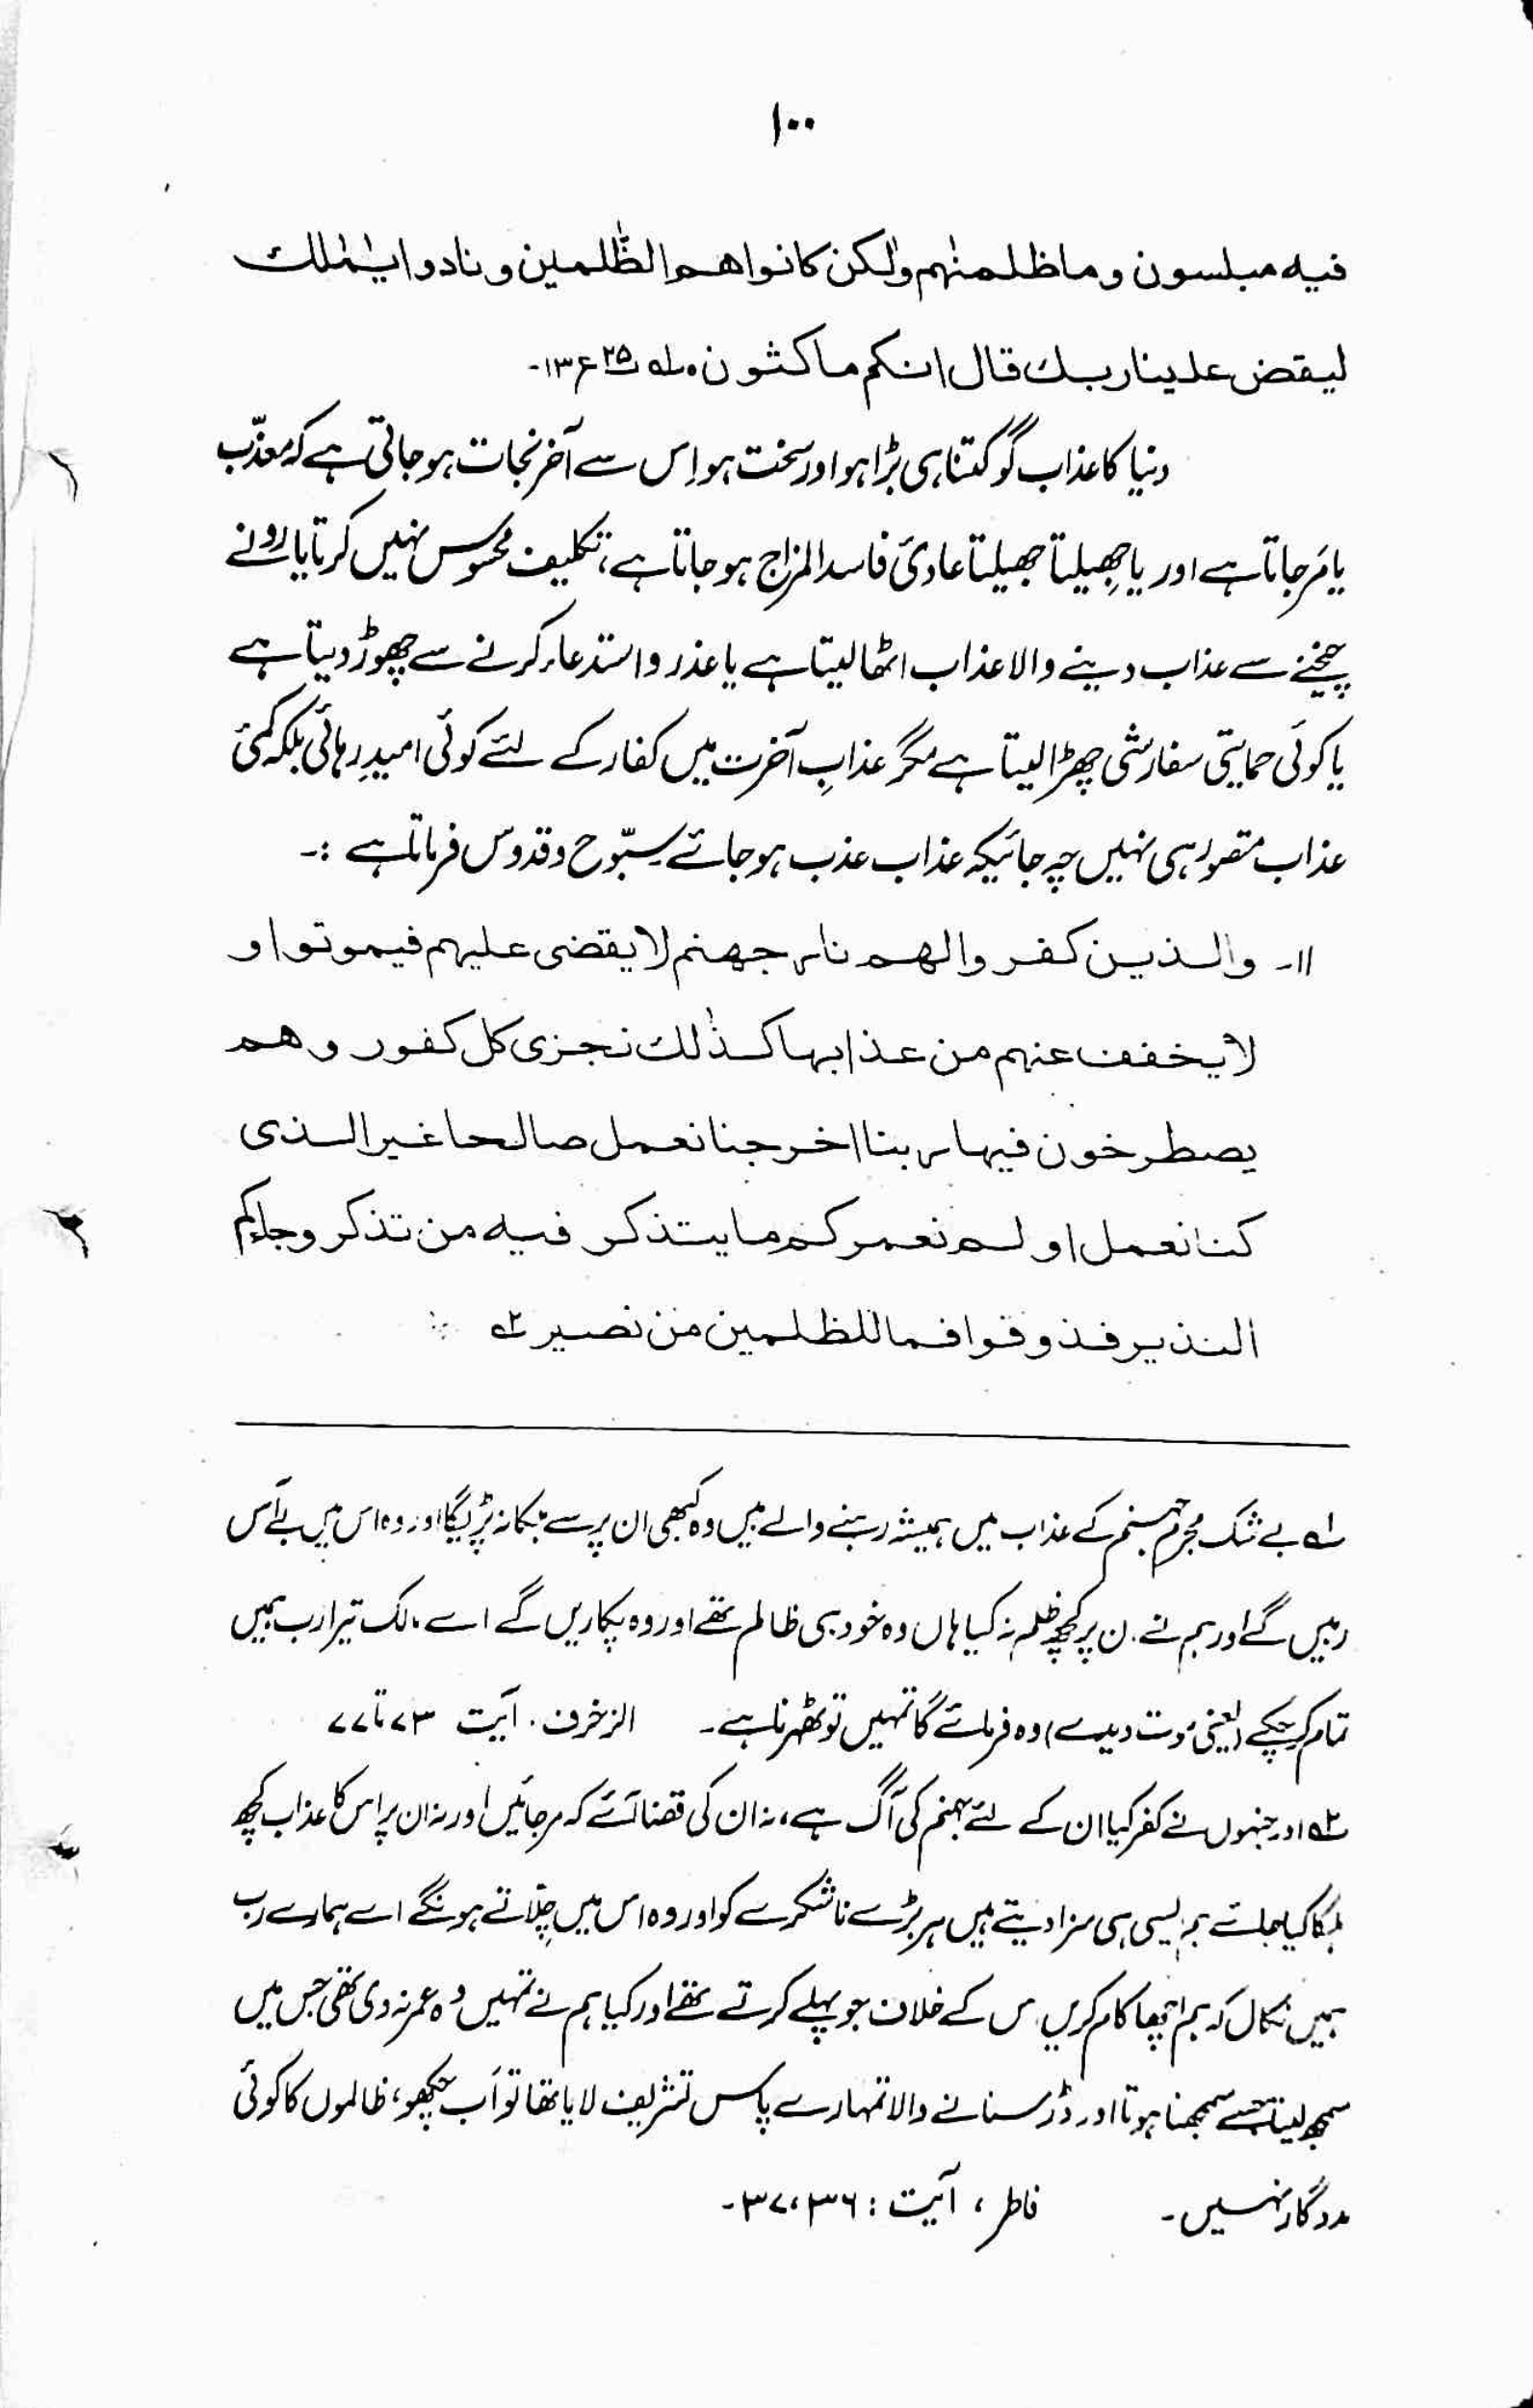 ۱۰۰
فیه مبلسون وما ظلمنٰهم ولٰکن کانوا هم الظّٰلمین ونادوا یٰمٰلك
لیقض علینا ربك قال انکم ماکثون ۰ ؎۱ پ۲۵ ع ۱۳-
دنیا کا عذاب گو کتنا ہی بڑا ہو اور سخت ہو اِس سے آخر نجات ہو جاتی ہے کہ معذّب
یا مَر جاتا ہے اور یا جھیلتا جھیلتا عادیٔ فاسد المزاج ہو جاتا ہے، تکلیف محسوس نہیں کرتا یا رونے
چیخنے سے عذاب دینے والا عذاب اٹھا لیتا ہے یا عذر و استدعاء کرنے سے چھوڑ دیتا ہے
یا کوئی حمایتی سفارشی چھڑا لیتا ہے مگر عذابِ آخرت میں کفار کے لئے کوئی امیدِ رہائی بلکہ کمیٔ
عذاب متصور ہی نہیں چہ جائیکہ عذاب عذب ہو جائے سبّوح و قدوس فرماتا ہے :-
۱۱- والذین کفروا لهم نار جهنم لا یقضی علیهم فیموتوا و
لا یخفف عنهم من عذابها کذٰلك نجزی کل کفور وهم
یصطرخون فیها ربنا اخرجنا نعمل صالحا غیر الذی
کنا نعمل اولم نعمرکم ما یتذکر فیه من تذکر وجاءکم
النذیر فذوقوا فما للظلمین من نصیر ؎۲
؎۱ بے شک مجرم جہنم کے عذاب میں ہمیشہ رہنے والے ہیں وہ کبھی ان پر سے ہلکا نہ پڑیگا اور وہ اس میں بے آس
رہیں گے اور ہم نے ان پر کچھ ظلم نہ کیا ہاں وہ خود ہی ظالم تھے اور وہ پکاریں گے اے مالک تیرا رب ہمیں
تمام کر چکے (یعنی موت دیدے) وہ فرمائے گا تمہیں تو ٹھہرنا ہے۔ الزخرف۔ آیت ۷۳ تا ۷۷
؎۲ اور جنہوں نے کفر کیا ان کے لئے جہنم کی آگ ہے، نہ ان کی قضا آئے کہ مر جائیں اور نہ ان پر اس کا عذاب کچھ
ہلکا کیا جائے ہم ایسی ہی سزا دیتے ہیں ہر بڑے ناشکرے کو اور وہ اس میں چِلّاتے ہونگے اے ہمارے رب
ہمیں نکال کہ ہم اچھا کام کریں اس کے خلاف جو پہلے کرتے تھے اور کیا ہم نے تمہیں وہ عمر نہ دی تھی جس میں
سمجھ لیتا جسے سمجھنا ہوتا اور ڈر سنانے والا تمہارے پاس تشریف لایا تھا تو اَب چکھو، ظالموں کا کوئی
مددگار نہیں۔ فاطر، آیت : ۳۶،۳۷-